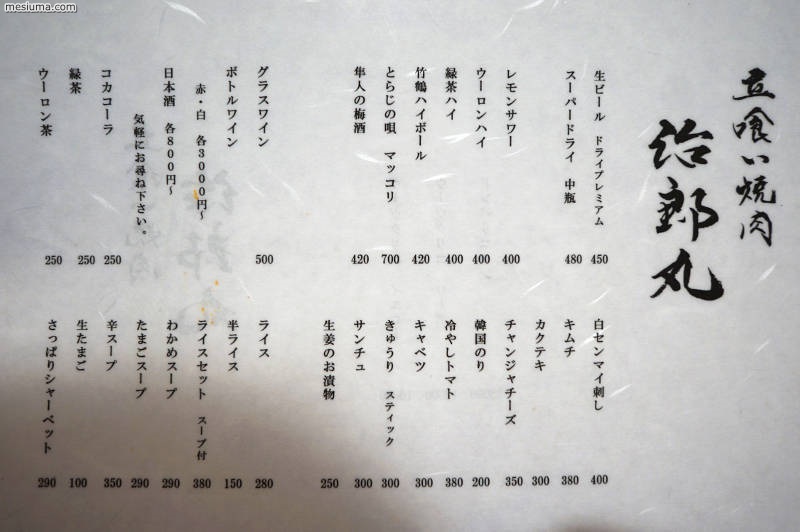 mesiuma.com
立喰い焼肉
治郎丸
生ビール ドライプレミアム 450
スーパードライ 中瓶 480
レモンサワー 400
ウーロンハイ 400
緑茶ハイ 400
竹鶴ハイボール 420
とらじの唄 マッコリ 700
隼人の梅酒 420
グラスワイン 500
ボトルワイン
赤・白 各3000円〜
日本酒 各800円〜
気軽にお尋ね下さい。
コカコーラ 250
緑茶 250
ウーロン茶 250
白センマイ刺し 400
キムチ 380
カクテキ 300
チャンジャチーズ 350
韓国のり 200
冷やしトマト 380
キャベツ 300
きゅうり スティック 300
サンチュ 300
生姜のお漬物 250
ライス 280
半ライス 150
ライスセット スープ付 380
わかめスープ 290
たまごスープ 290
辛スープ 350
生たまご 100
さっぱりシャーベット 290